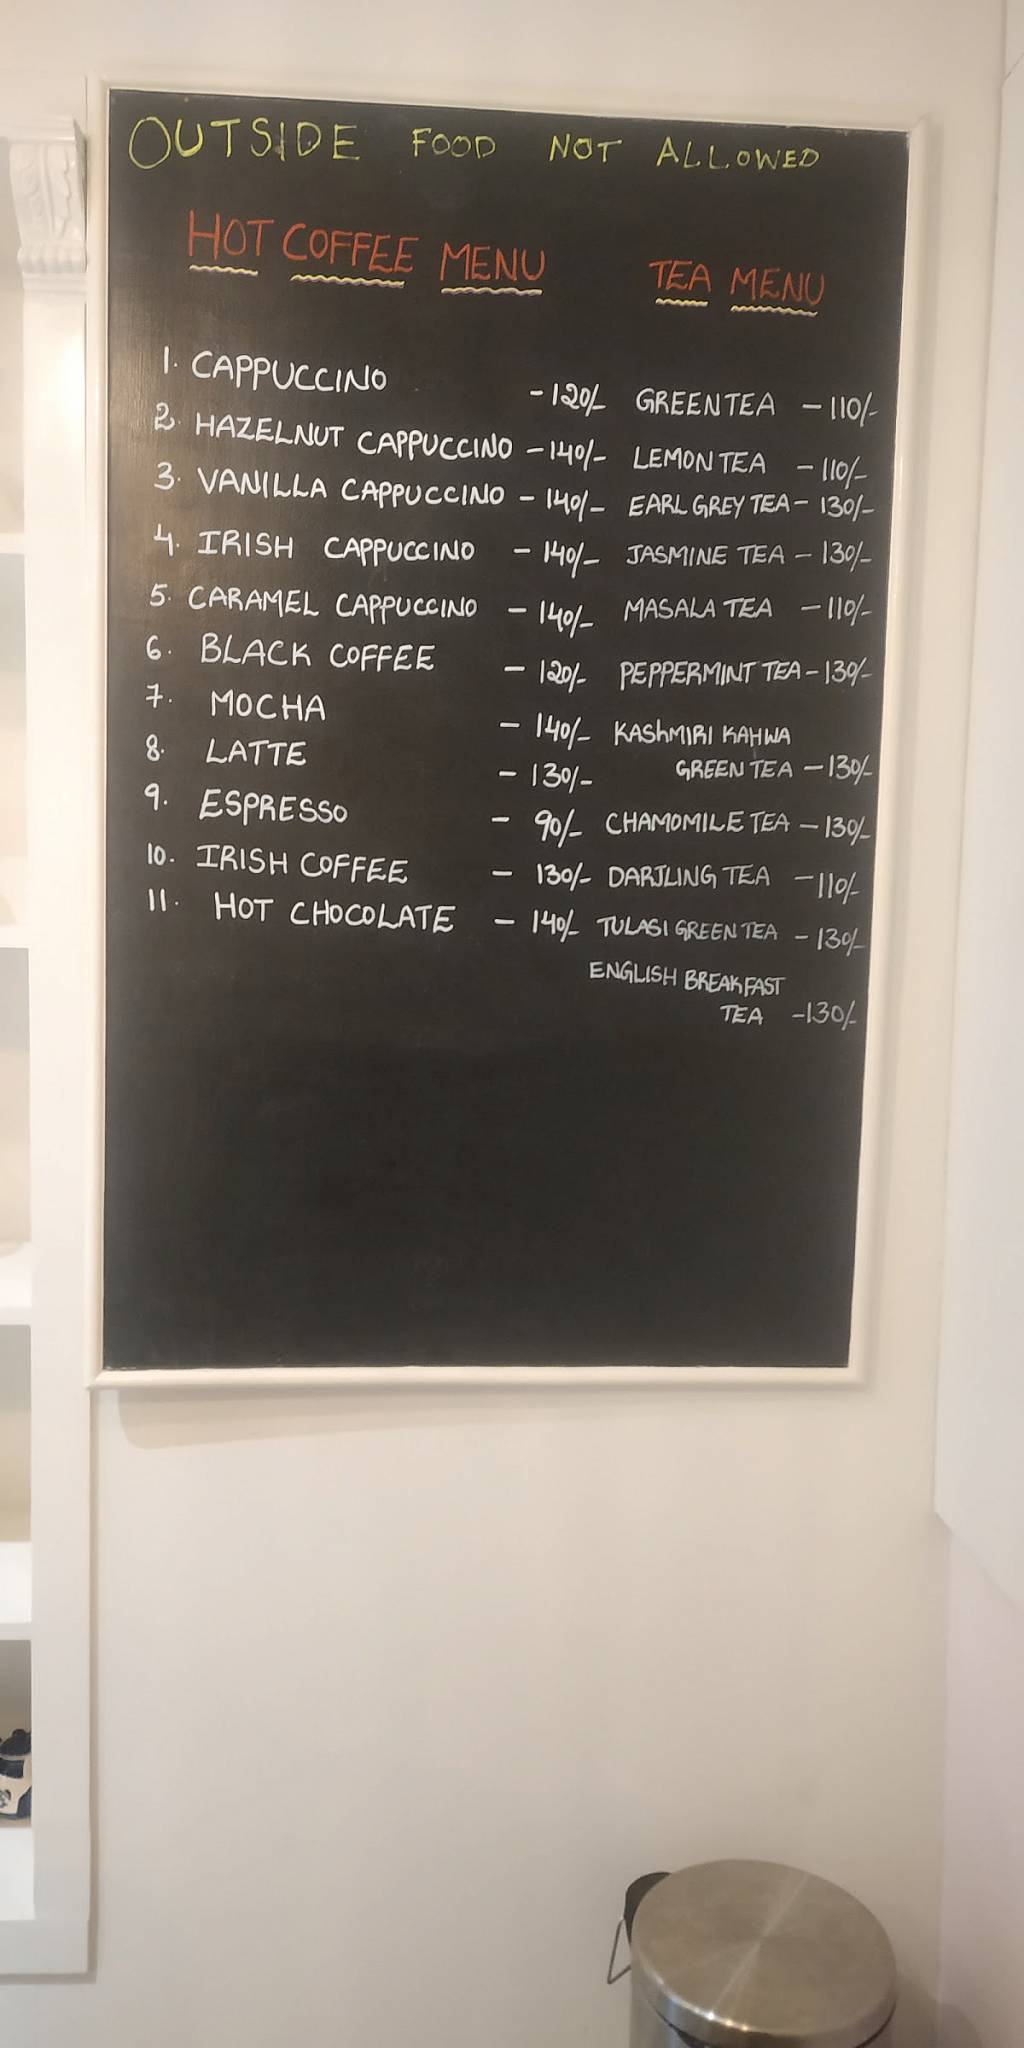 OUTSIDE FOOD NOT ALLOWED
HOT COFFEE MENU
1. CAPPUCCINO - 120/-
2. HAZELNUT CAPPUCCINO - 140/-
3. VANILLA CAPPUCCINO - 140/-
4. IRISH CAPPUCCINO - 140/-
5. CARAMEL CAPPUCCINO - 140/-
6. BLACK COFFEE - 120/-
7. MOCHA - 140/-
8. LATTE - 130/-
9. ESPRESSO - 90/-
10. IRISH COFFEE - 130/-
11. HOT CHOCOLATE - 140/-
TEA MENU
GREEN TEA - 110/-
LEMON TEA - 110/-
EARL GREY TEA - 130/-
JASMINE TEA - 130/-
MASALA TEA - 110/-
PEPPERMINT TEA - 130/-
KASHMIRI KAHWA
GREEN TEA - 130/-
CHAMOMILE TEA - 130/-
DARJLING TEA - 110/-
TULASI GREEN TEA - 130/-
ENGLISH BREAKFAST
TEA - 130/-